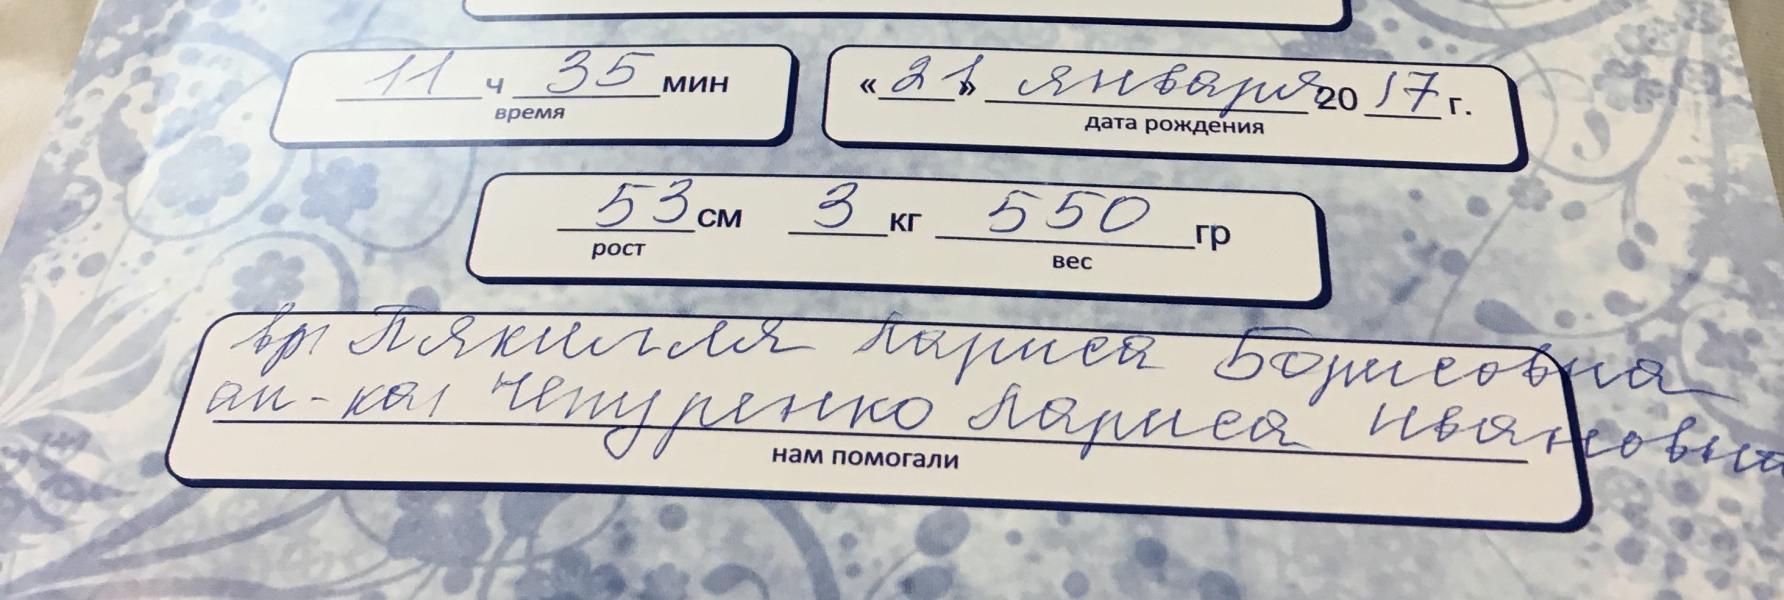 11 ч 35 мин
время
«21» января 2017 г.
дата рождения
53 см 3 кг 550 гр
рост вес
вр. Пякилля Лариса Борисовна
ак-ка Чепуренко Лариса Ивановна
нам помогали